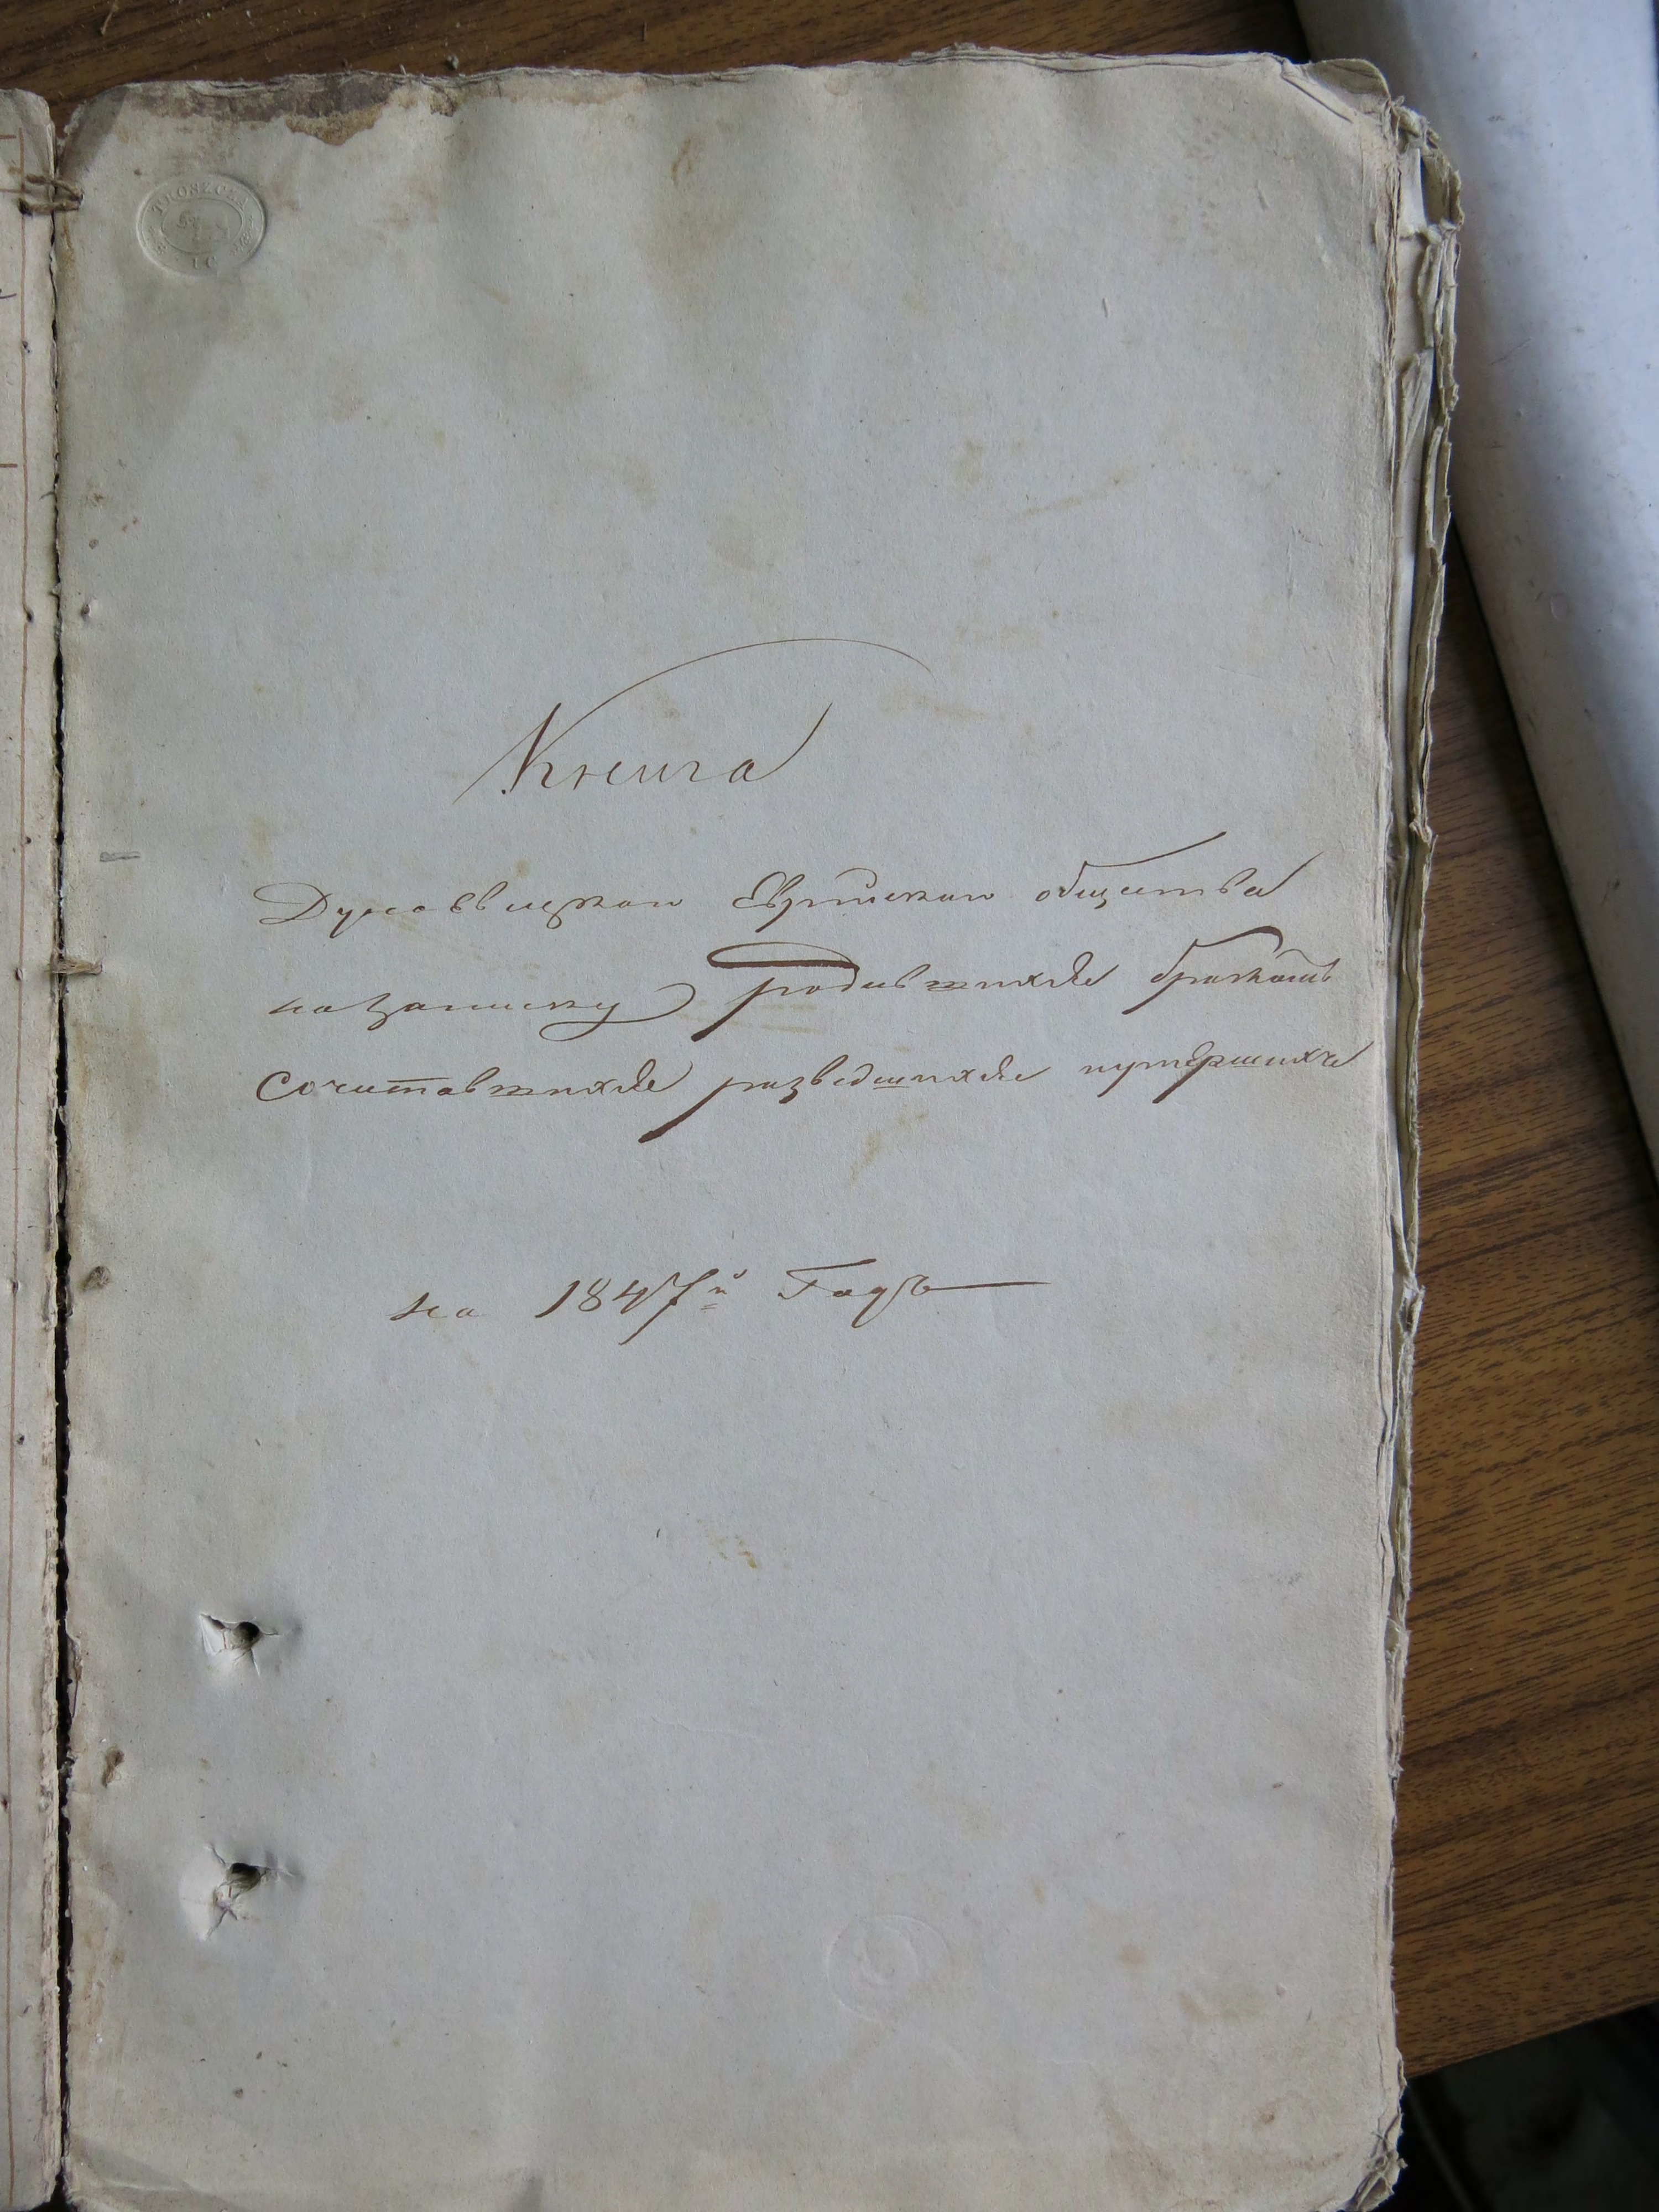 Книга
Еврейскаго общества
на записку родившихся бракомъ
сочитавшихся разведшихся иумершихъ
на 1847й Годъ